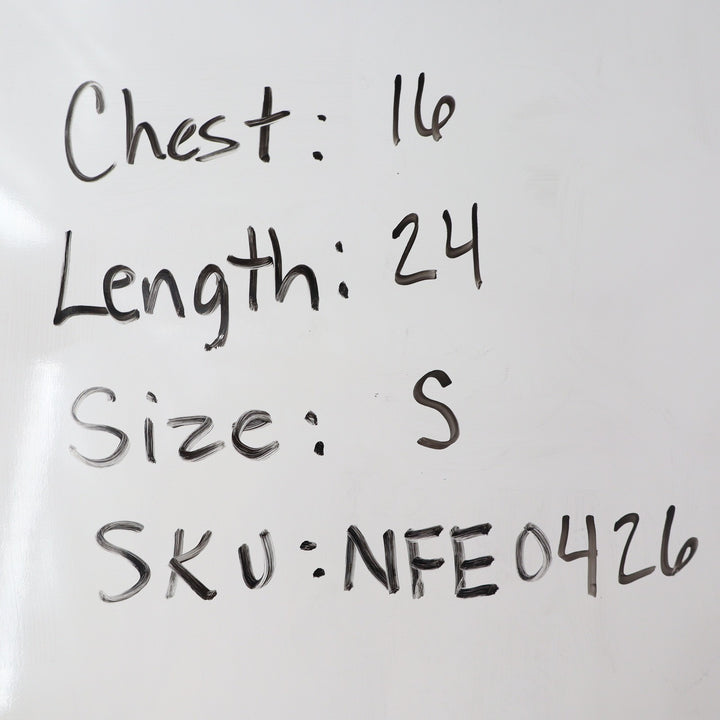 Chest: 16
Length: 24
Size: S
SKU: NFE0426